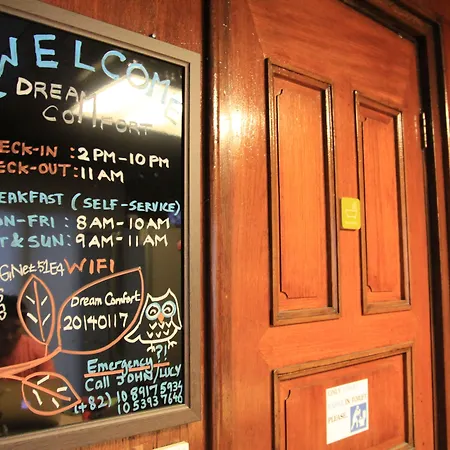 WELCOME
DREAM
COMFORT
ECK-IN : 2 PM-10 PM
ECK-OUT : 11 AM
EAKFAST (SELF-SERVICE)
ON-FRI : 8 AM-10 AM
T & SUN : 9 AM-11 AM
WIFI
Dream Comfort
20140117
Emergency?!
Call JOHN/LUCY
(+82) 10 8917 5934
10 5393 7646
PLEASE